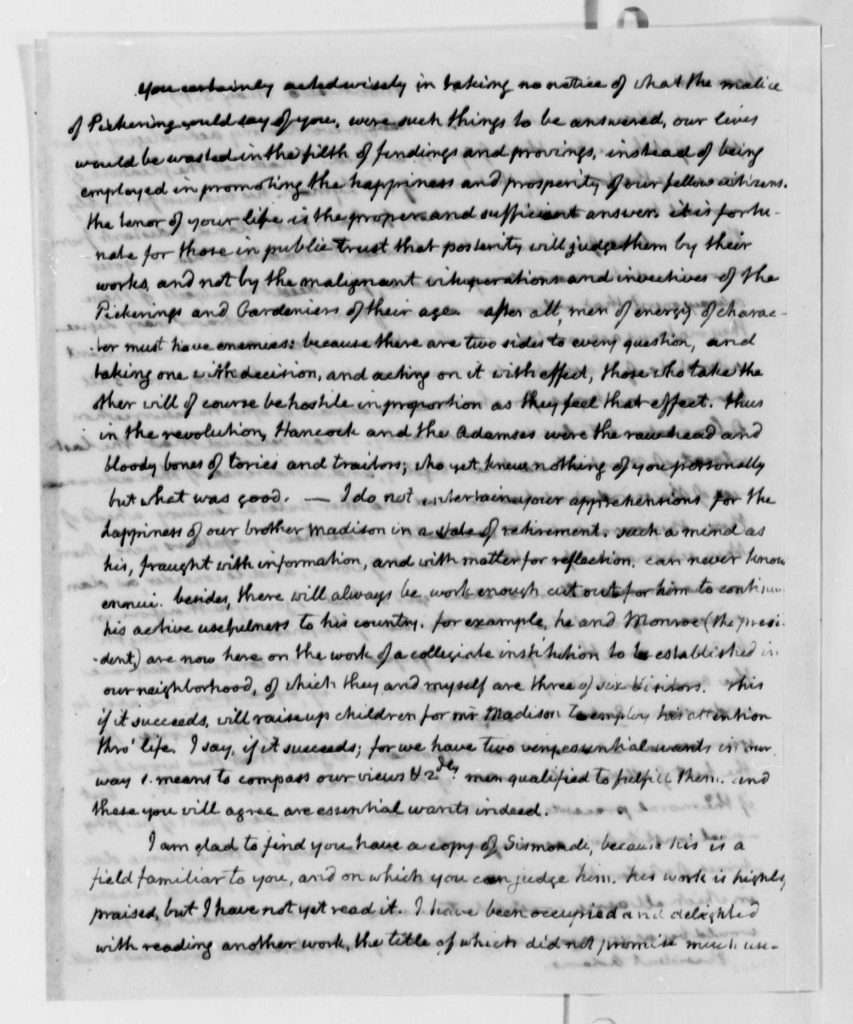 You certainly acted wisely in taking no notice of what the malice
of Pickering could say of you. were such things to be answered, our lives
would be wasted in the filth of fendings and provings, instead of being
employed in promoting the happiness and prosperity of our fellow citizens.
the tenor of your life is the proper and sufficient answer. it is fortu-
nate for those in public trust that posterity will judge them by their
works, and not by the malignant vituperations and invectives of the
Pickerings and Gardeniers of their age. after all, men of energy of charac-
-ter must have enemies: because there are two sides to every question, and
taking one with decision, and acting on it with effect, those who take the
other will of course be hostile in proportion as they feel that effect. thus
in the revolution, Hancock and the Adamses were the raw head and
bloody bones of tories and traitors; who yet knew nothing of you personally
but what was good. — I do not entertain your apprehensions for the
happiness of our brother Madison in a state of retirement. such a mind as
his, fraught with information, and with matter for reflection, can never know
ennui. besides, there will always be work enough cut out for him to continue
his active usefulness to his country. for example, he and Monroe (the presi-
-dent,) are now here on the work of a collegiate institution to be established in
our neighborhood, of which they and myself are three of six Visitors. this
if it succeeds, will raise up children for mr Madison to employ his attention
thro' life. I say, if it succeeds; for we have two very essential wants in our
way 1. means to compass our views & 2dly men qualified to fulfill them. and
these you will agree are essential wants indeed.
I am glad to find you have a copy of Sismondi, because his is a
field familiar to you, and on which you can judge him. his work is highly
praised, but I have not yet read it. I have been occupied and delighted
with reading another work, the title of which did not promise much use-